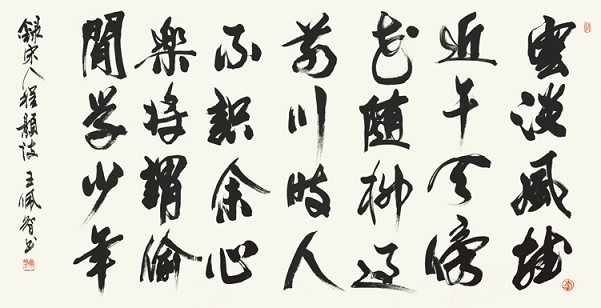 雲淡風輕
近午天傍
花随柳過
前川時人
不識余心
樂將謂偷
閒學少年
録宋人程顥诗 王佩智书